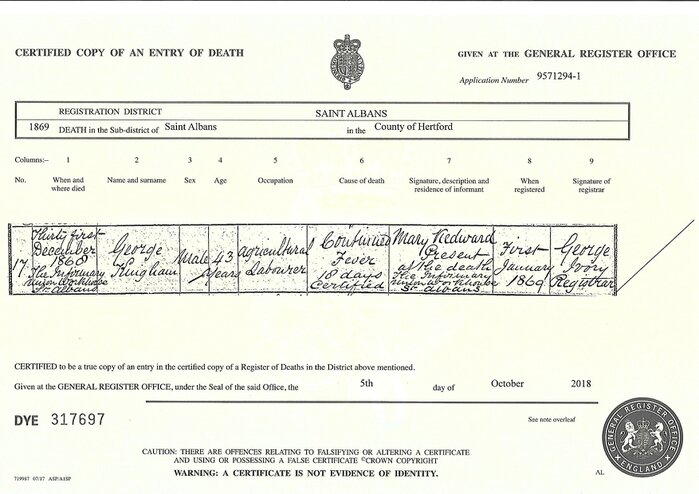 CERTIFIED COPY OF AN ENTRY OF DEATH
GIVEN AT THE GENERAL REGISTER OFFICE
Application Number 9571294-1
REGISTRATION DISTRICT SAINT ALBANS
1869 DEATH in the Sub-district of Saint Albans in the County of Hertford
Columns:– 1 2 3 4 5 6 7 8 9
No. When and where died Name and surname Sex Age Occupation Cause of death Signature, description and residence of informant When registered Signature of registrar
17
Thirty first
December
1868
The Infirmary
Union Workhouse
St. Albans
George
Kingham
Male
43
years
Agricultural
Labourer
Continued
Fever
18 days
Certified
Mary
Present
at the death
The Infirmary
Union Workhouse
St. Albans
First
January
1869
George
Ivory
Registrar
CERTIFIED to be a true copy of an entry in the certified copy of a Register of Deaths in the District above mentioned.
Given at the GENERAL REGISTER OFFICE, under the Seal of the said Office, the 5th day of October 2018
DYE 317697
See note overleaf
CAUTION: THERE ARE OFFENCES RELATING TO FALSIFYING OR ALTERING A CERTIFICATE
AND USING OR POSSESSING A FALSE CERTIFICATE ©CROWN COPYRIGHT
WARNING: A CERTIFICATE IS NOT EVIDENCE OF IDENTITY.
719987 07/17 ASP/A1SP
AL
GENERAL REGISTER OFFICE
ENGLAND